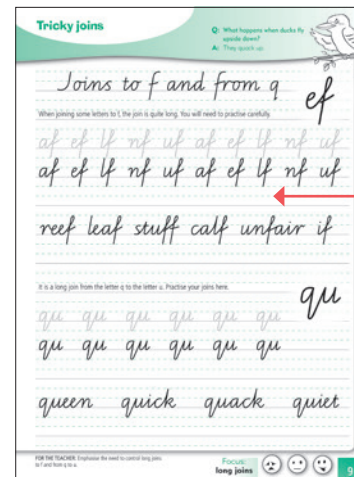 Tricky joins
Q: What happens when ducks fly
upside down?
A: They quack up.
Joins to f and from q
ef
When joining some letters to f, the join is quite long. You will need to practise carefully.
af ef lf nf uf af ef lf nf uf
af ef lf nf uf af ef lf nf uf
reef leaf stuff calf unfair if
It is a long join from the letter q to the letter u. Practise your joins here.
qu
qu qu qu qu qu qu
qu qu qu qu qu qu
queen quick quack quiet
FOR THE TEACHER: Emphasise the need to control long joins
to f and from q to u.
Focus:
long joins
9